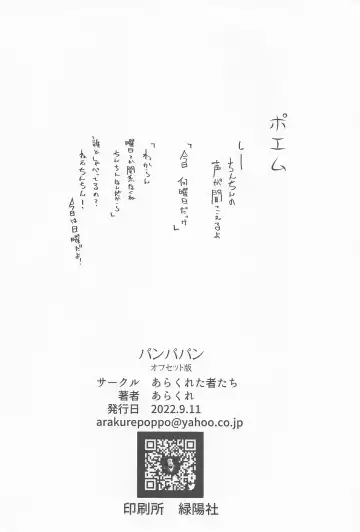 ポエム
しー
ちんちんの
声が聞こえるよ
「今日 何曜日だっけ」
「わからん
曜日とか聞かなくね
ちんちんなんだから」
誰としゃべってるの?
ねえちんちん!
今日は日曜だよ!
パンパパン
オフセット版
サークル あらくれた者たち
著者 あらくれ
発行日 2022.9.11
arakurepoppo@yahoo.co.jp
印刷所 緑陽社